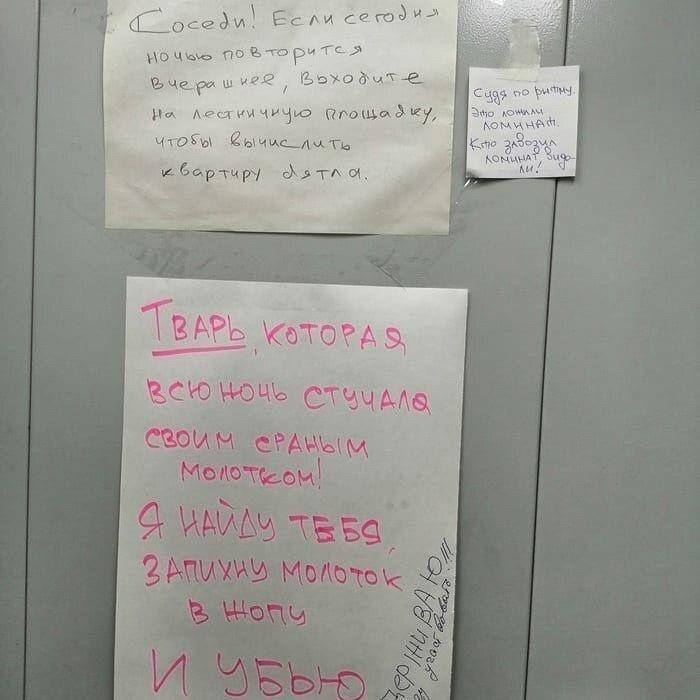 Соседи! Если сегодня
ночью повторится
вчерашнее, выходите
на лестничную площадку,
чтобы вычислить
квартиру дятла.
Судя по ритму.
Это ложили
ломинат.
Кто завозил
ломинат, вида-
ли!
Тварь, которая
всю ночь стучала
своим сраным
молотком!
Я найду тебя,
запихну молоток
в жопу
и убью
участвовать!!!